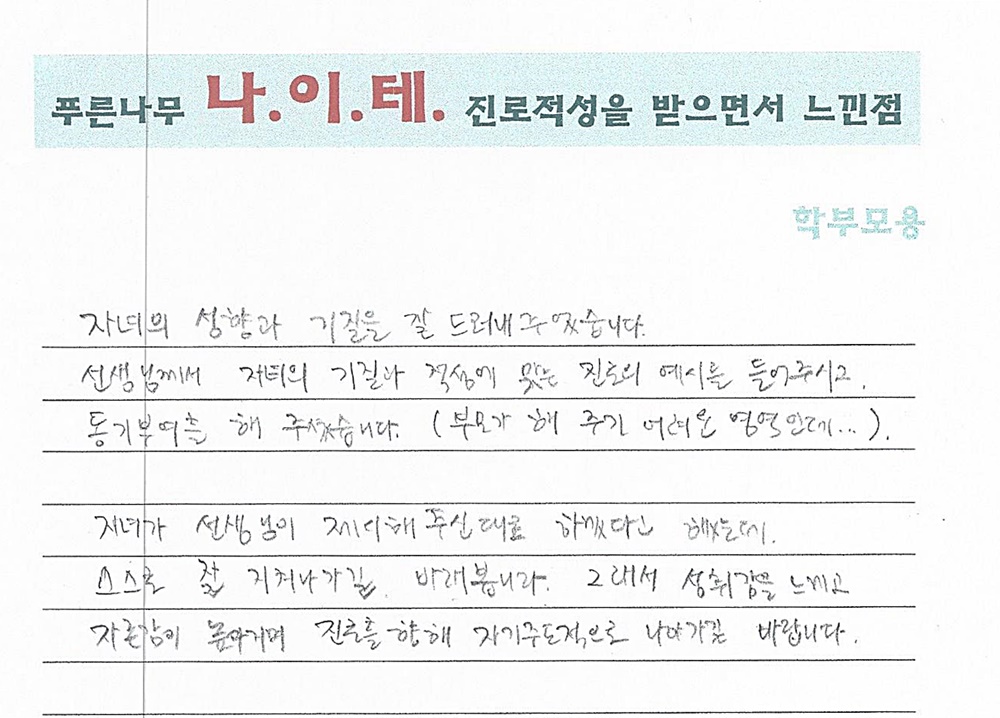 푸른나무 나.이.테. 진로적성을 받으면서 느낀점
학부모용
자녀의 성향과 기질을 잘 드러내 주었습니다.
선생님께서 자녀의 기질과 적성에 맞는 진로의 예시를 들어주시고,
동기부여를 해 주셨습니다. (부모가 해 주기 어려운 영역인데...).
자녀가 선생님이 제시해 주신대로 하겠다고 했는데,
스스로 잘 지켜나가길 바래봅니다. 그래서 성취감을 느끼고
자존감이 높아지며 진로를 향해 자기주도적으로 나아가길 바랍니다.